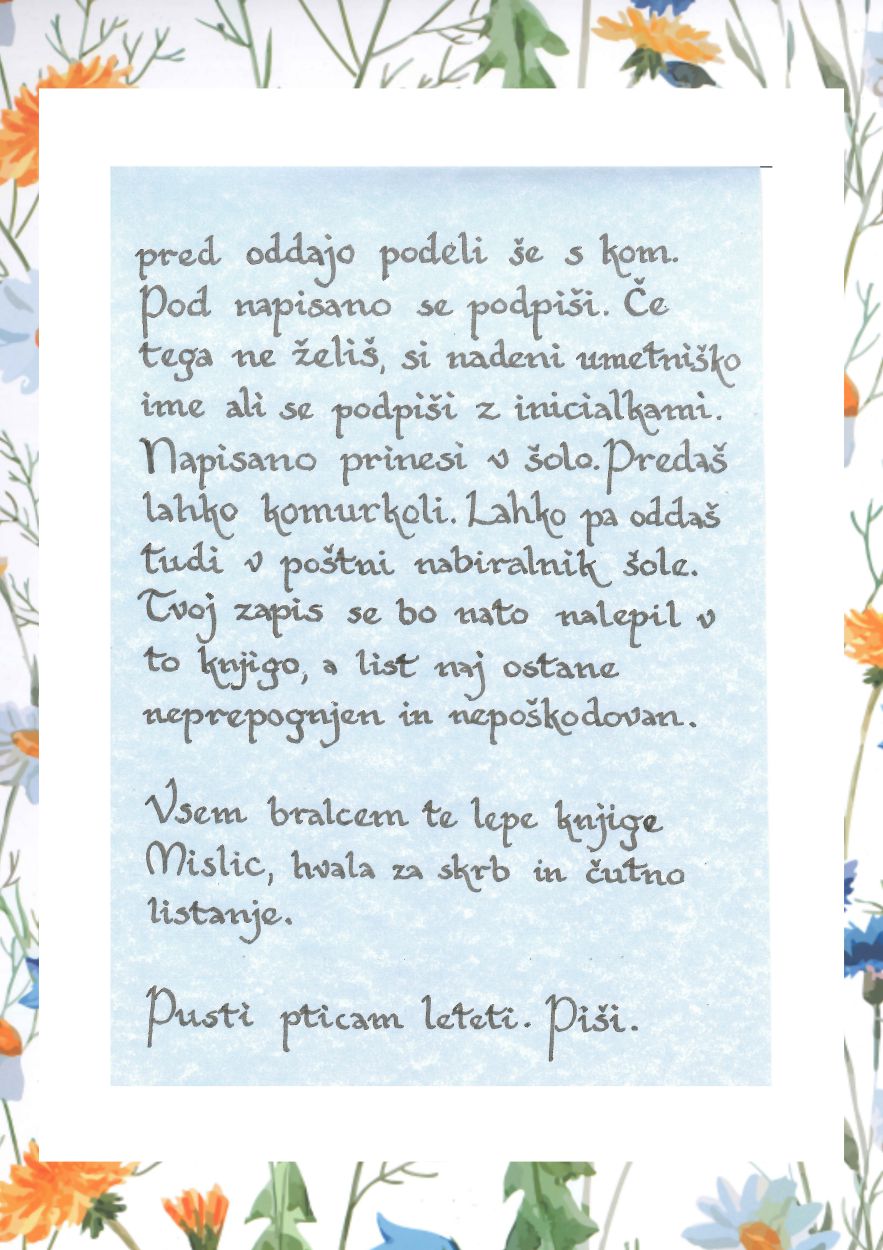 pred oddajo podeli še s kom.
Pod napisano se podpiši. Če
tega ne želiš, si nadeni umetniško
ime ali se podpiši z inicialkami.
Napisano prinesi v šolo. Predaš
lahko komurkoli. Lahko pa oddaš
tudi v poštni nabiralnik šole.
Tvoj zapis se bo nato nalepil v
to knjigo, a list naj ostane
neprepognjen in nepoškodovan.
Vsem bralcem te lepe knjige
Mislic, hvala za skrb in čutno
listanje.
Pusti pticam leteti. Piši.